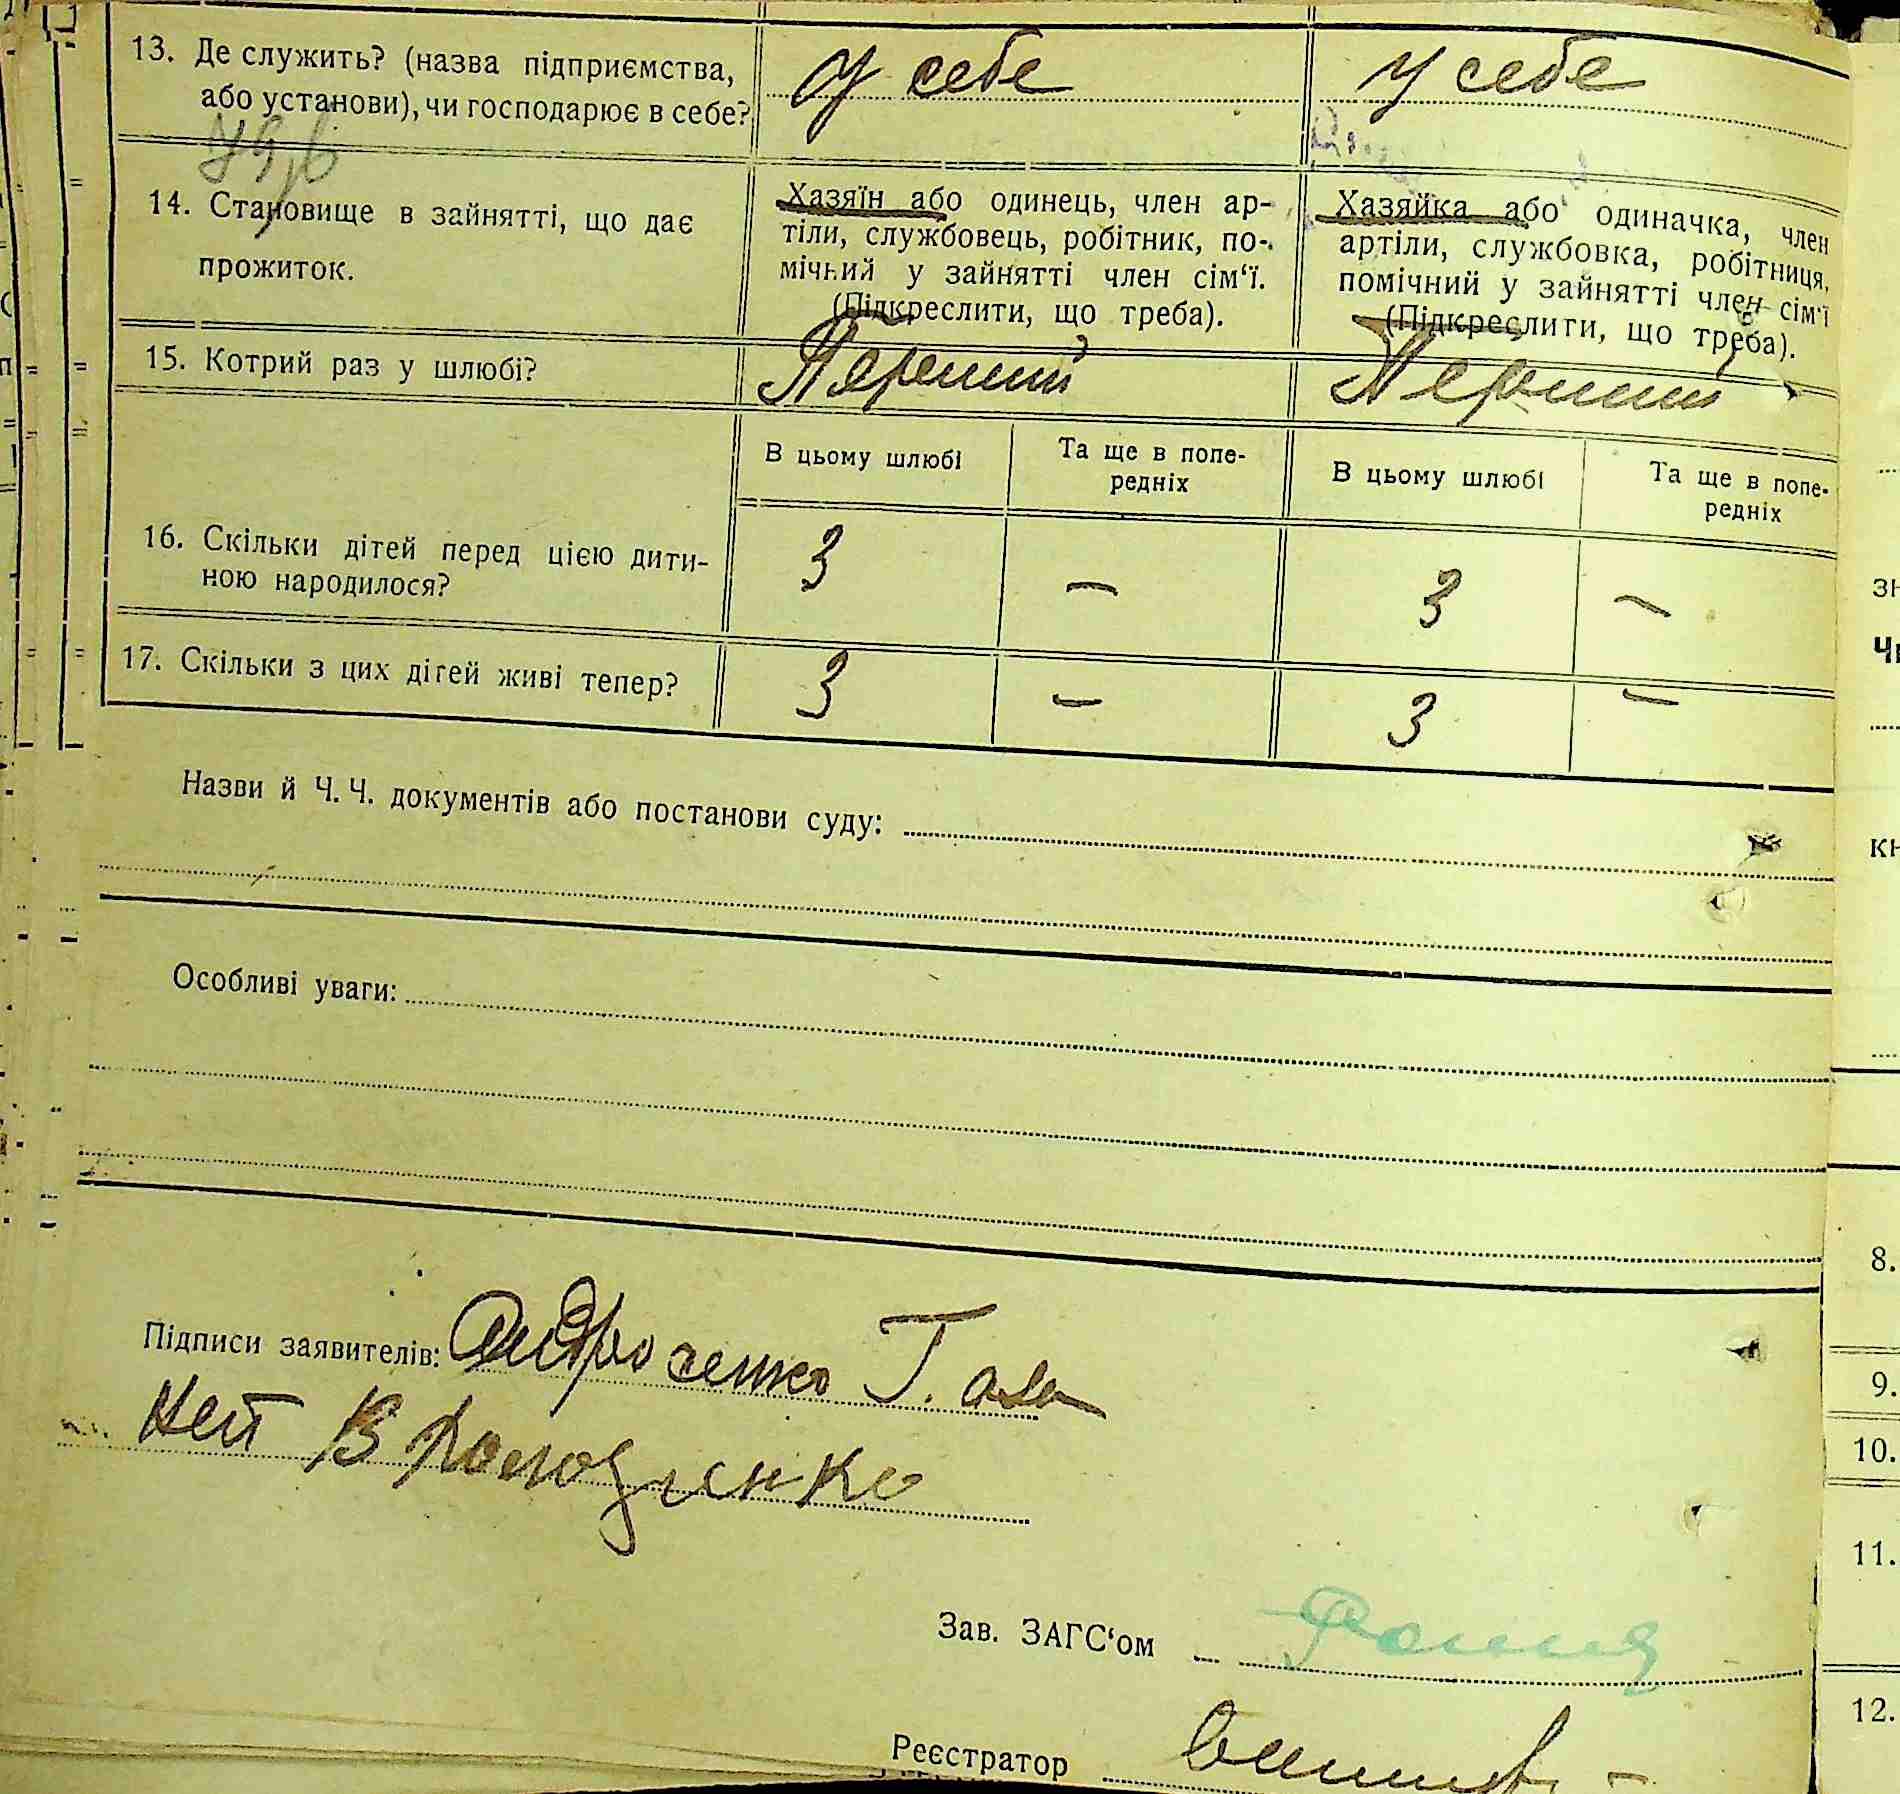 13. Де служить? (назва підприємства, або установи), чи господарює в себе? у себе у себе
14. Становище в зайнятті, що дає прожиток.
Хазяїн або одинець, член ар-
тіли, службовець, робітник, по-
мічний у зайнятті член сім‘ї.
(Підкреслити, що треба).
Хазяйка або одиначка, член
артіли, службовка, робітниця,
помічний у зайнятті член сім‘ї
(Підкреслити, що треба).
15. Котрий раз у шлюбі? Перший Перший
В цьому шлюбі
Та ще в попе-
редніх
В цьому шлюбі
Та ще в попе-
редніх
16. Скільки дітей перед цією дити-
ною народилося? 3 — 3 —
17. Скільки з цих дітей живі тепер? 3 — 3 —
Назви й Ч. Ч. документів або постанови суду:
Особливі уваги:
Підписи заявителів:
Зав. ЗАГС‘ом
Реєстратор
8.
9.
10.
11.
12.